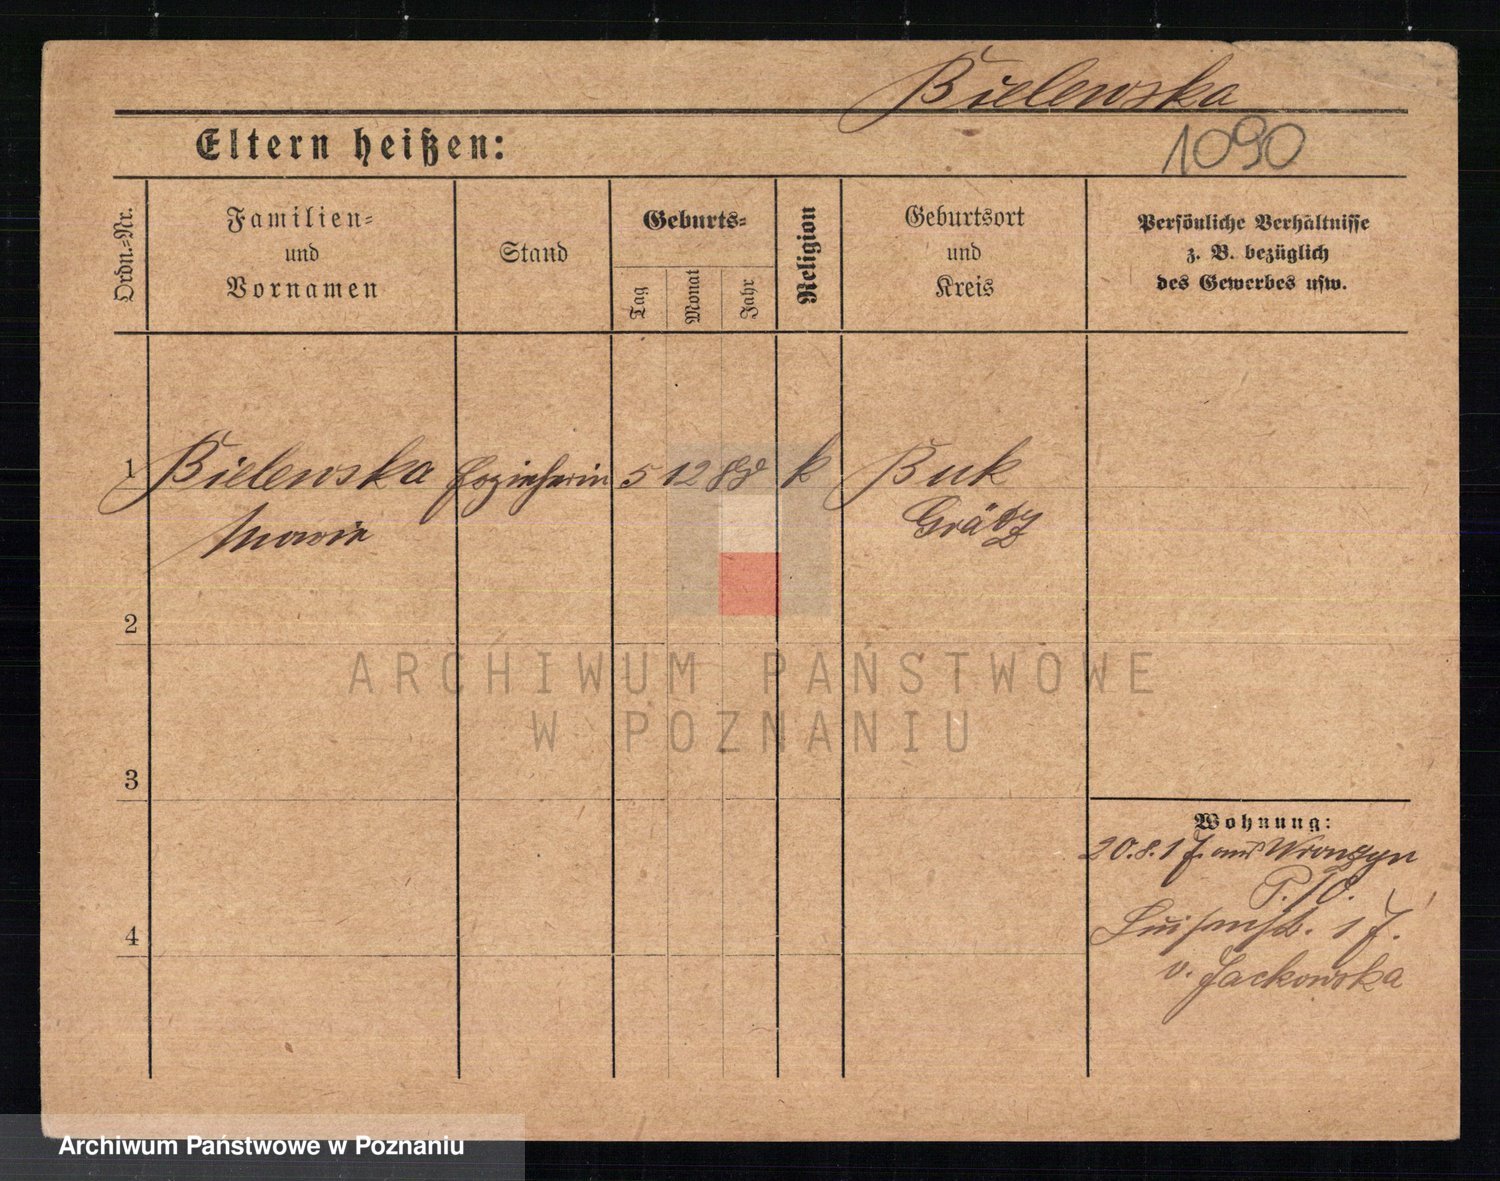 Bielewska
Eltern heißen:
1090
Ordn.=Nr.
Familien=
und
Vornamen
Stand
Geburts=
Tag
Monat
Jahr
Religion
Geburtsort
und
Kreis
Persönliche Verhältnisse
z. B. bezüglich
des Gewerbes usw.
1
Bielewska Erzieherin 5 12 88 k Buk
Marie Grätz
2
ARCHIWUM PAŃSTWOWE
W POZNANIU
3
Wohnung:
20.8.17. aus Wronczyn
P./O.
Luisenst. 17.
v. Jackowska
4
Archiwum Państwowe w Poznaniu